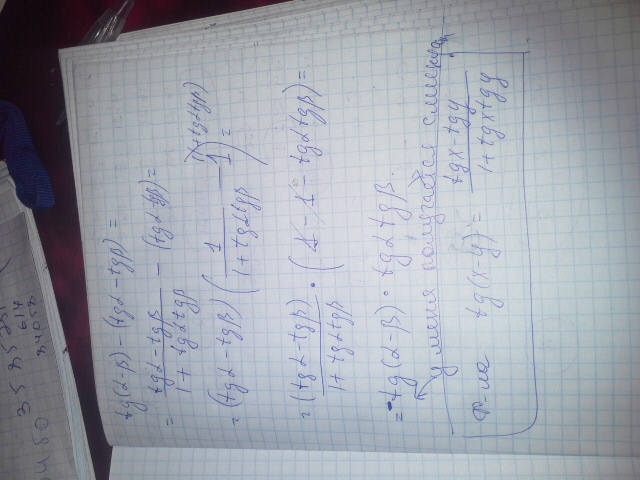 tg(α-β) - (tgα - tgβ) =
= (tgα - tgβ)/(1 + tgαtgβ) - (tgα-tgβ) =
= (tgα - tgβ) (1/(1 + tgαtgβ) - 1) =
(1+tgαtgβ)
= (tgα-tgβ)/(1+tgαtgβ) · (1 - 1 - tgαtgβ) =
= tg(α-β) · tgαtgβ.
у меня получается с минусом
ф-ла tg(x-y) = (tgx - tgy)/(1 + tgx tgy)